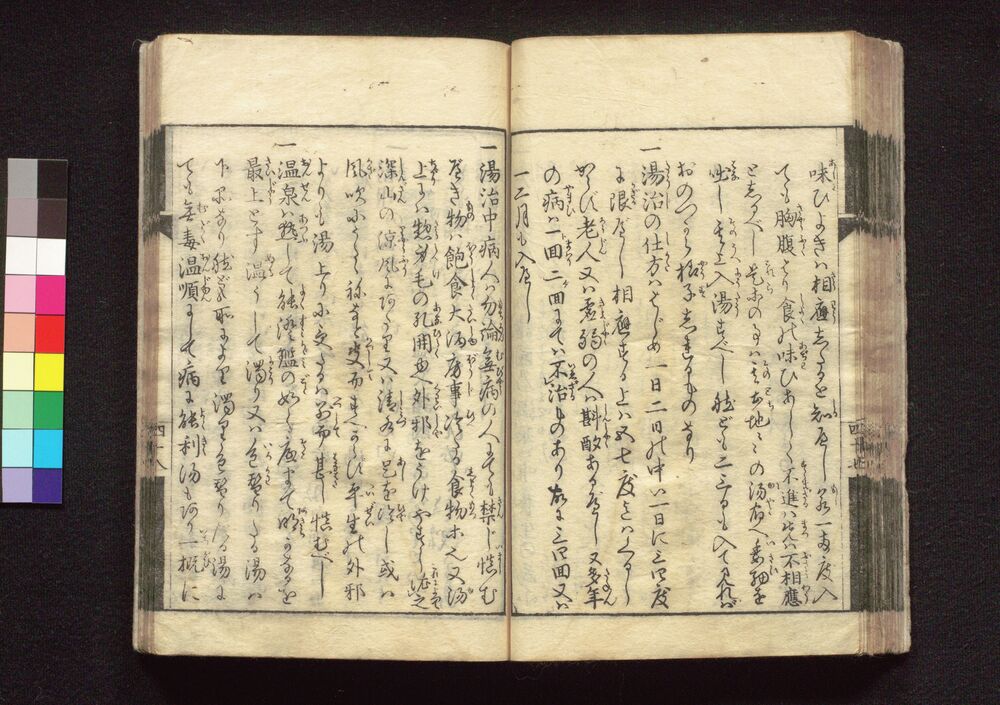 味ひよきハ相應しるを知べし若一両度入
ても胸腹より食の味ひあしく不進ハ先ハ不相應
としるべし是等のよハ其地々の湯宿へ委細を
咄し其上入湯すべし然ども二三日も入て見れバ
おのづから様子しれるものなり
一湯治の仕方ハはじめ一日二日の中ハ一日に三四度
に限べし相應する上ハ五七度迄ハくるし
からず老人又ハ虚弱の人ハ斟酌あるべし又多年
の病ハ一回二回にてハ不治ものあり故に三四回又ハ
一二月も入べし
一湯治中病人ハ勿論無病の人にても禁じ慎む
べき物ハ飽食大酒房事冷る食物等也又湯
上にハ惣身毛の孔開ゆへ外邪をうけやすし依之
深山の涼風にあたり又ハ清水に足を冷し或ハ
風吹ふしく祢むる事而すべからず平生の外邪
よりも湯上りに受たるハ別而甚し慎むべし
一温泉ハ惣して能澄底まで明かなるを
最上とす温うして濁り又ハ色替りたる湯ハ
下品なり然ども所により濁り色替りたる湯に
ても無毒温順にして病に能利湯もあり一概に
四十八